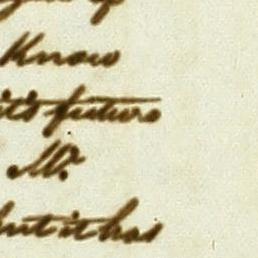 Know
its future
Mr.
but it has